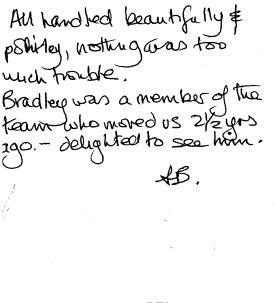 All handled beautifully &
politely, nothing was too
much trouble.
Bradley was a member of the
team who moved us 2½ yrs
ago. – delighted to see him.
AB.